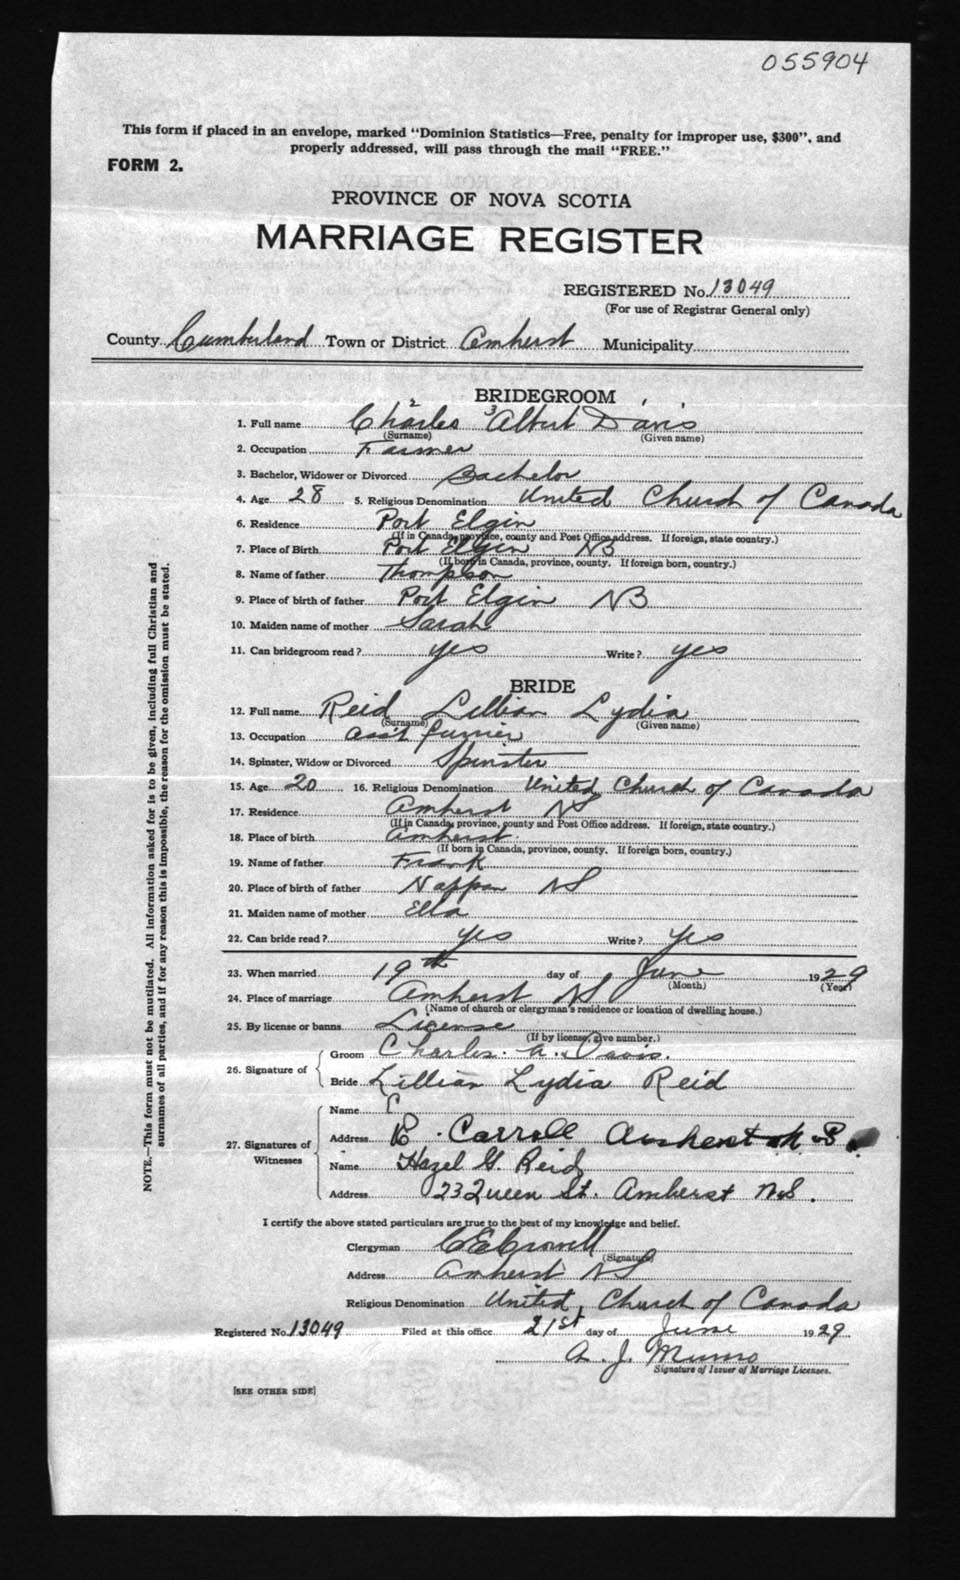 055904
This form if placed in an envelope, marked "Dominion Statistics—Free, penalty for improper use, $300", and
properly addressed, will pass through the mail "FREE."
FORM 2.
PROVINCE OF NOVA SCOTIA
MARRIAGE REGISTER
REGISTERED No. 13049
(For use of Registrar General only)
County Cumberland Town or District Amherst Municipality
BRIDEGROOM
1. Full name Charles 2 Albert 3 Davis 1
(Surname) (Given name)
2. Occupation Farmer
3. Bachelor, Widower or Divorced Bachelor
4. Age 28 5. Religious Denomination United Church of Canada
6. Residence Port Elgin
(If in Canada, province, county and Post Office address. If foreign, state country.)
7. Place of Birth Port Elgin NB
(If born in Canada, province, county. If foreign born, country.)
8. Name of father Thompson
9. Place of birth of father Port Elgin NB
10. Maiden name of mother Sarah
11. Can bridegroom read? yes Write? yes
BRIDE
12. Full name Reid Lillian Lydia
(Surname) (Given name)
13. Occupation asst
14. Spinster, Widow or Divorced Spinster
15. Age 20 16. Religious Denomination United Church of Canada
17. Residence Amherst NS
(If in Canada, province, county and Post Office address. If foreign, state country.)
18. Place of birth Amherst.
(If born in Canada, province, county. If foreign born, country.)
19. Name of father Frank
20. Place of birth of father Nappan NS
21. Maiden name of mother Ella
22. Can bride read? yes Write? yes
23. When married 19th day of June 1929
(Month) (Year)
24. Place of marriage Amherst NS
(Name of church or clergyman's residence or location of dwelling house.)
25. By license or banns License
(If by license, give number.)
26. Signature of Groom Charles. A. Davis.
Bride Lillian Lydia Reid
27. Signatures of Witnesses
Name
Address Carroll Amherst
Name Hazel G. Reid
Address 23 Queen St. Amherst N.S.
I certify the above stated particulars are true to the best of my knowledge and belief.
Clergyman C E Crowell
(Signature)
Address Amherst NS
Religious Denomination United Church of Canada
Registered No. 13049 Filed at this office 21st day of June 1929
A. J. Munro
Signature of Issuer of Marriage Licenses.
[SEE OTHER SIDE]
NOTE.—This form must not be mutilated. All information asked for is to be given, including full Christian and
surnames of all parties, and if for any reason this is impossible, the reason for the omission must be stated.